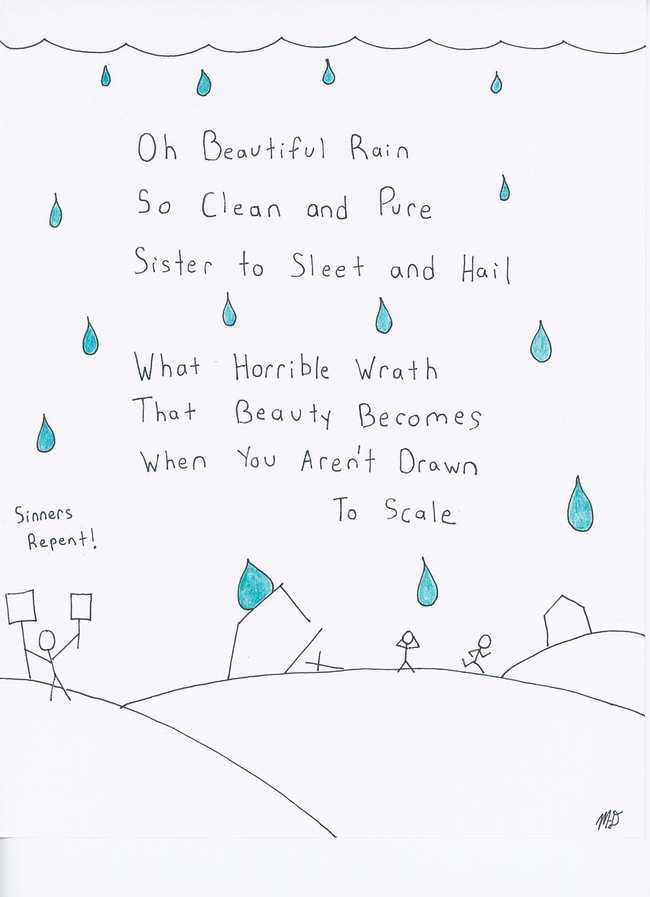 Oh Beautiful Rain
So Clean and Pure
Sister to Sleet and Hail
What Horrible Wrath
That Beauty Becomes
When You Aren't Drawn
To Scale
Sinners
Repent!
MD